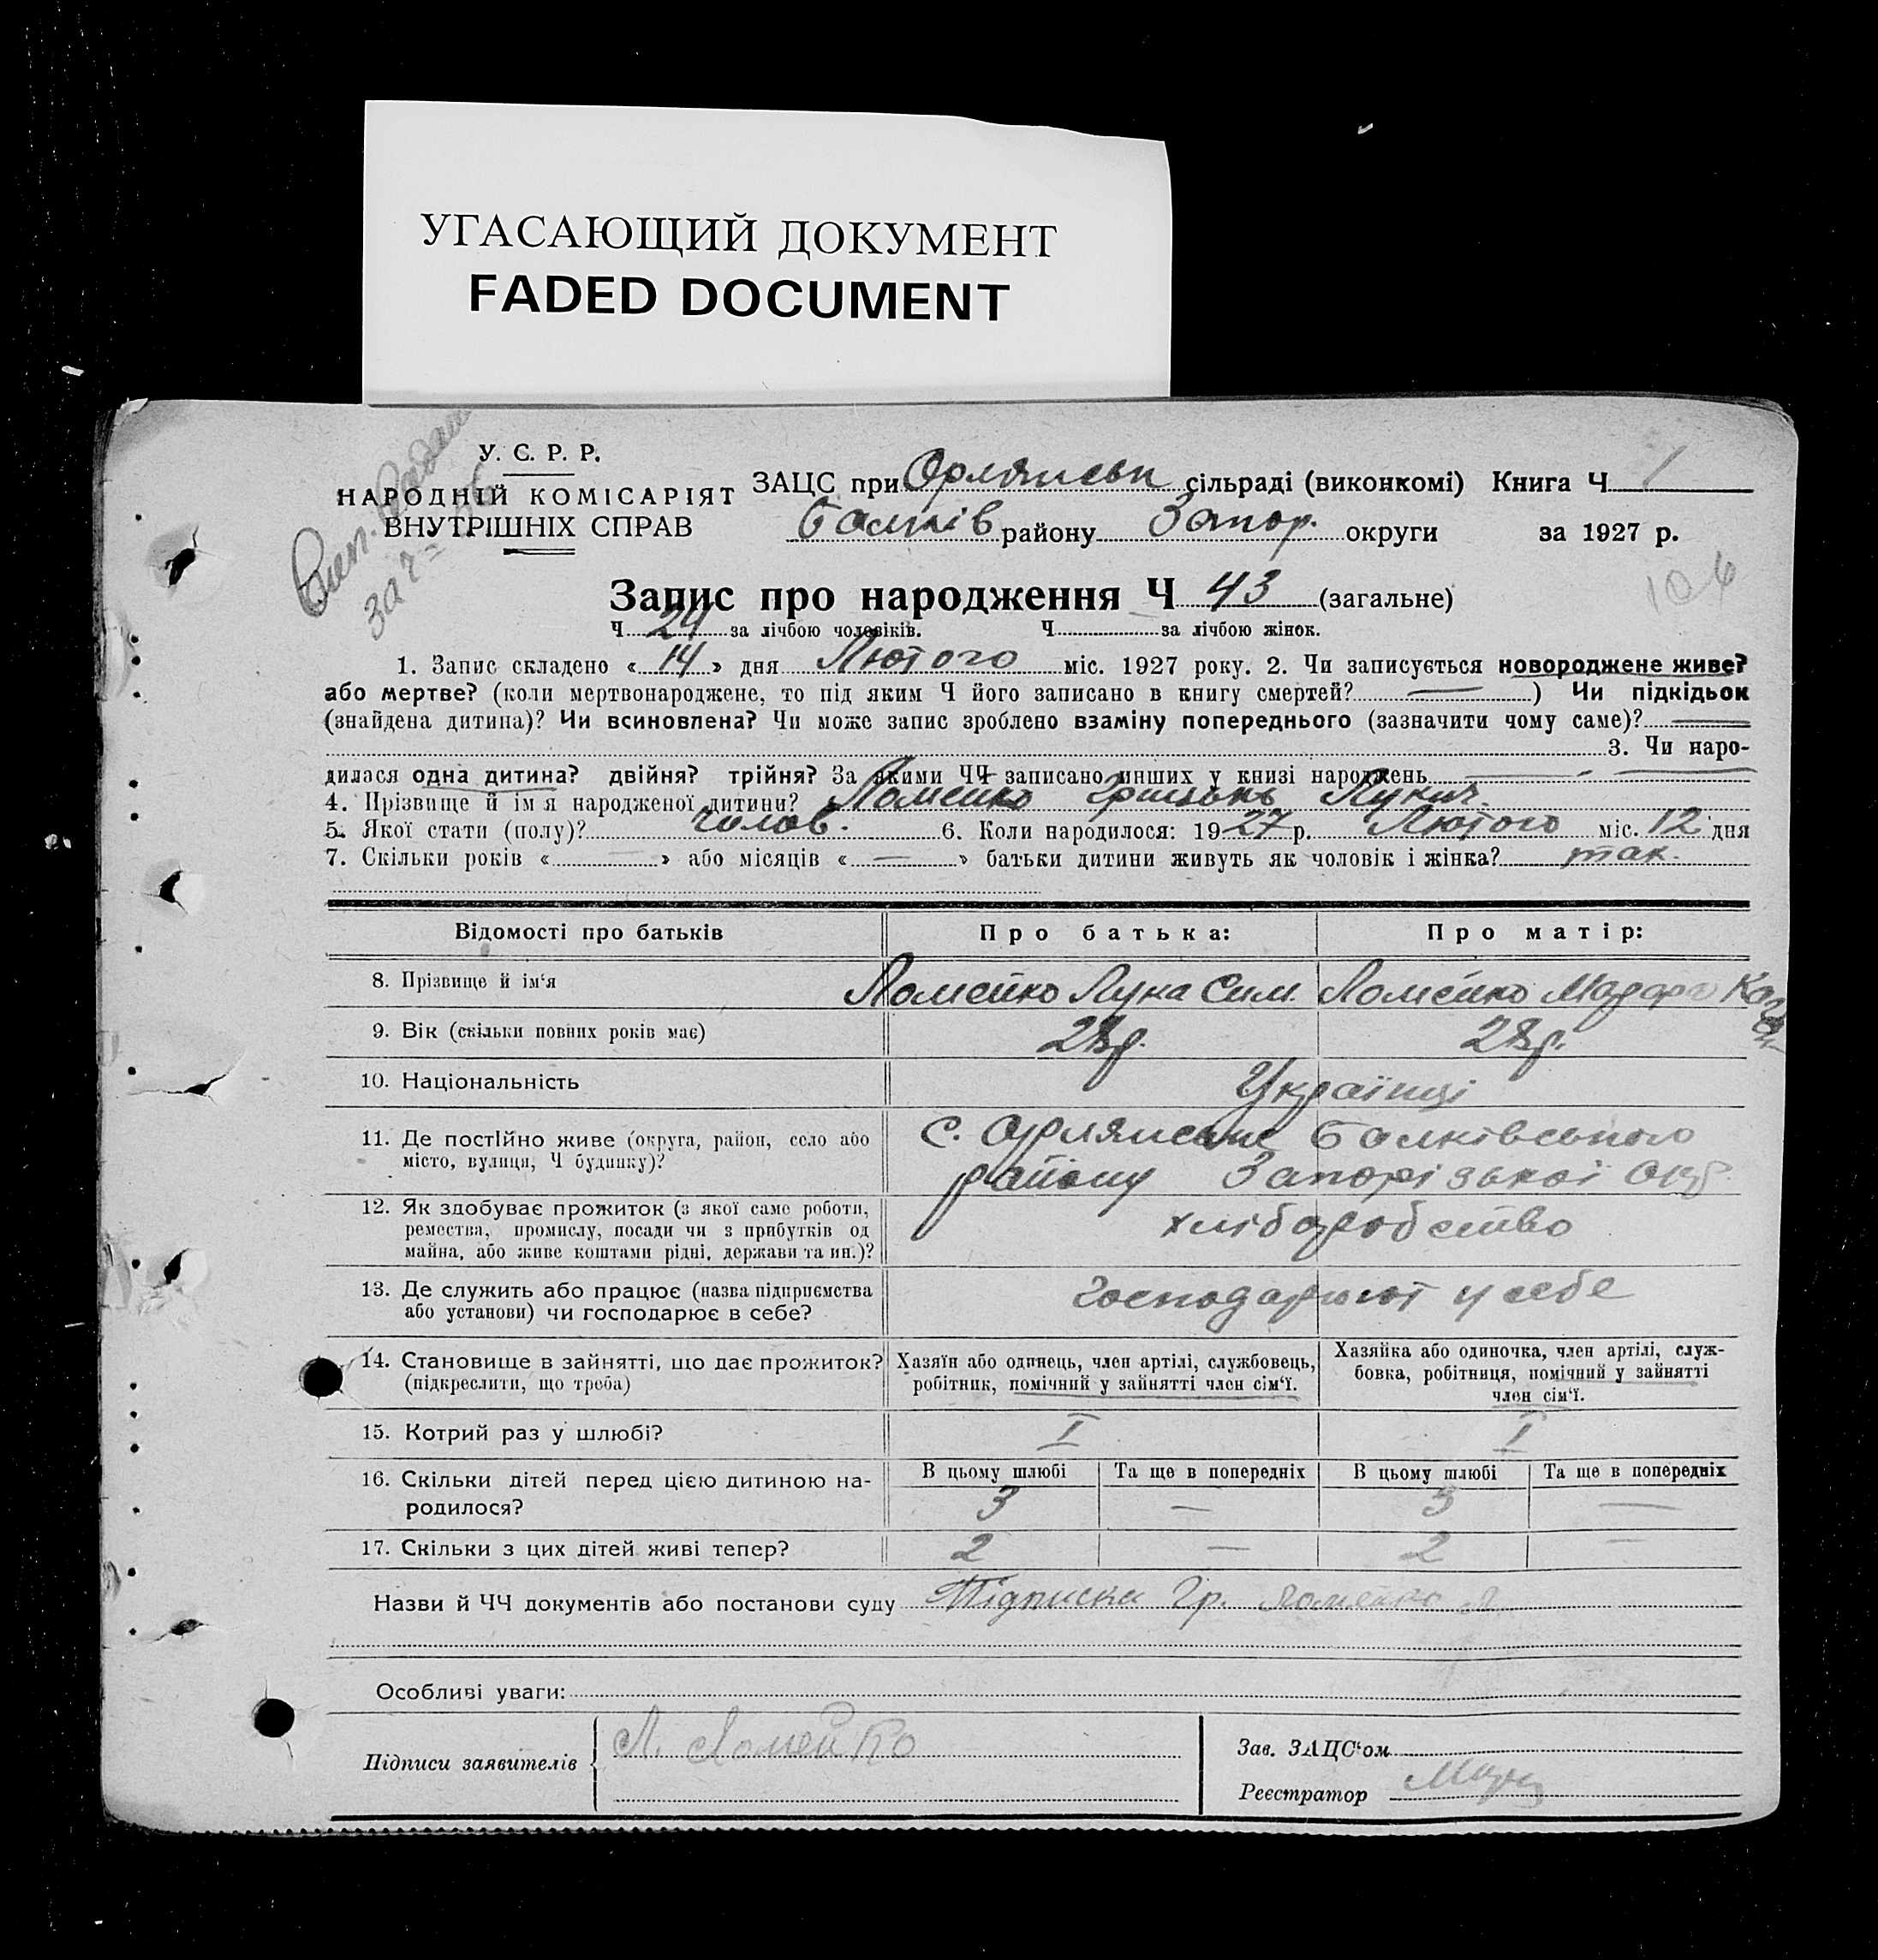 УГАСАЮЩИЙ ДОКУМЕНТ
FADED DOCUMENT
У. С. Р. Р.
НАРОДНІЙ КОМІСАРІЯТ
ВНУТРІШНІХ СПРАВ
ЗАЦС при Орлянськ сільраді (виконкомі) Книга Ч 1
Балків району Запор. округи за 1927 р.
за ч = 56
Запис про народження Ч 43 (загальне)
106
Ч 24 за лічбою чоловіків. Ч за лічбою жінок.
1. Запис складено « 14 » дня Лютого міс. 1927 року. 2. Чи записується новороджене живе?
або мертве? (коли мертвонароджене, то під яким Ч його записано в книгу смертей? — ) Чи підкідьок
(знайдена дитина)? Чи всиновлена? Чи може запис зроблено взаміну попереднього (зазначити чому саме)? —
3. Чи наро-
дилася одна дитина? двійня? трійня? За якими ЧЧ записано инших у книзі народжень — —
4. Прізвище й ім'я народженої дитини? Ломейко Лукич.
5. Якої стати (полу)? чолов. 6. Коли народилося: 1927 р. Лютого міс. 12 дня
7. Скільки років « — » або місяців « — » батьки дитини живуть як чоловік і жінка? так.
Відомості про батьків Про батька: Про матір:
8. Прізвище й ім'я Ломейко Лука Сим. Ломейко
9. Вік (скільки повних років має) 28р. 28р.
10. Національність Українці
11. Де постійно живе (округа, район, село або с. Орлянське Балківського
місто, вулиця, Ч будинку)? району Запорізької окр.
12. Як здобуває прожиток (з якої саме роботи, хліборобство
ремества, промислу, посади чи з прибутків од
майна, або живе коштами рідні, держави та ин.)?
13. Де служить або працює (назва підприємства господарюют у себе
або установи) чи господарює в себе?
14. Становище в зайнятті, що дає прожиток? Хазяїн або одинець, член артілі, службовець, Хазяйка або одиночка, член артілі, служ-
(підкреслити, що треба) робітник, помічний у зайнятті член сім'ї. бовка, робітниця, помічний у зайнятті
член сім'ї.
15. Котрий раз у шлюбі? I I
16. Скільки дітей перед цією дитиною на- В цьому шлюбі Та ще в попередніх В цьому шлюбі Та ще в попередніх
родилося? 3 — 3 —
17. Скільки з цих дітей живі тепер? 2 — 2 —
Назви й ЧЧ документів або постанови суду Підписка гр. Ломейко Л.
Особливі уваги:
Підписи заявителів Л. Ломейко
Зав. ЗАЦС'ом
Реєстратор